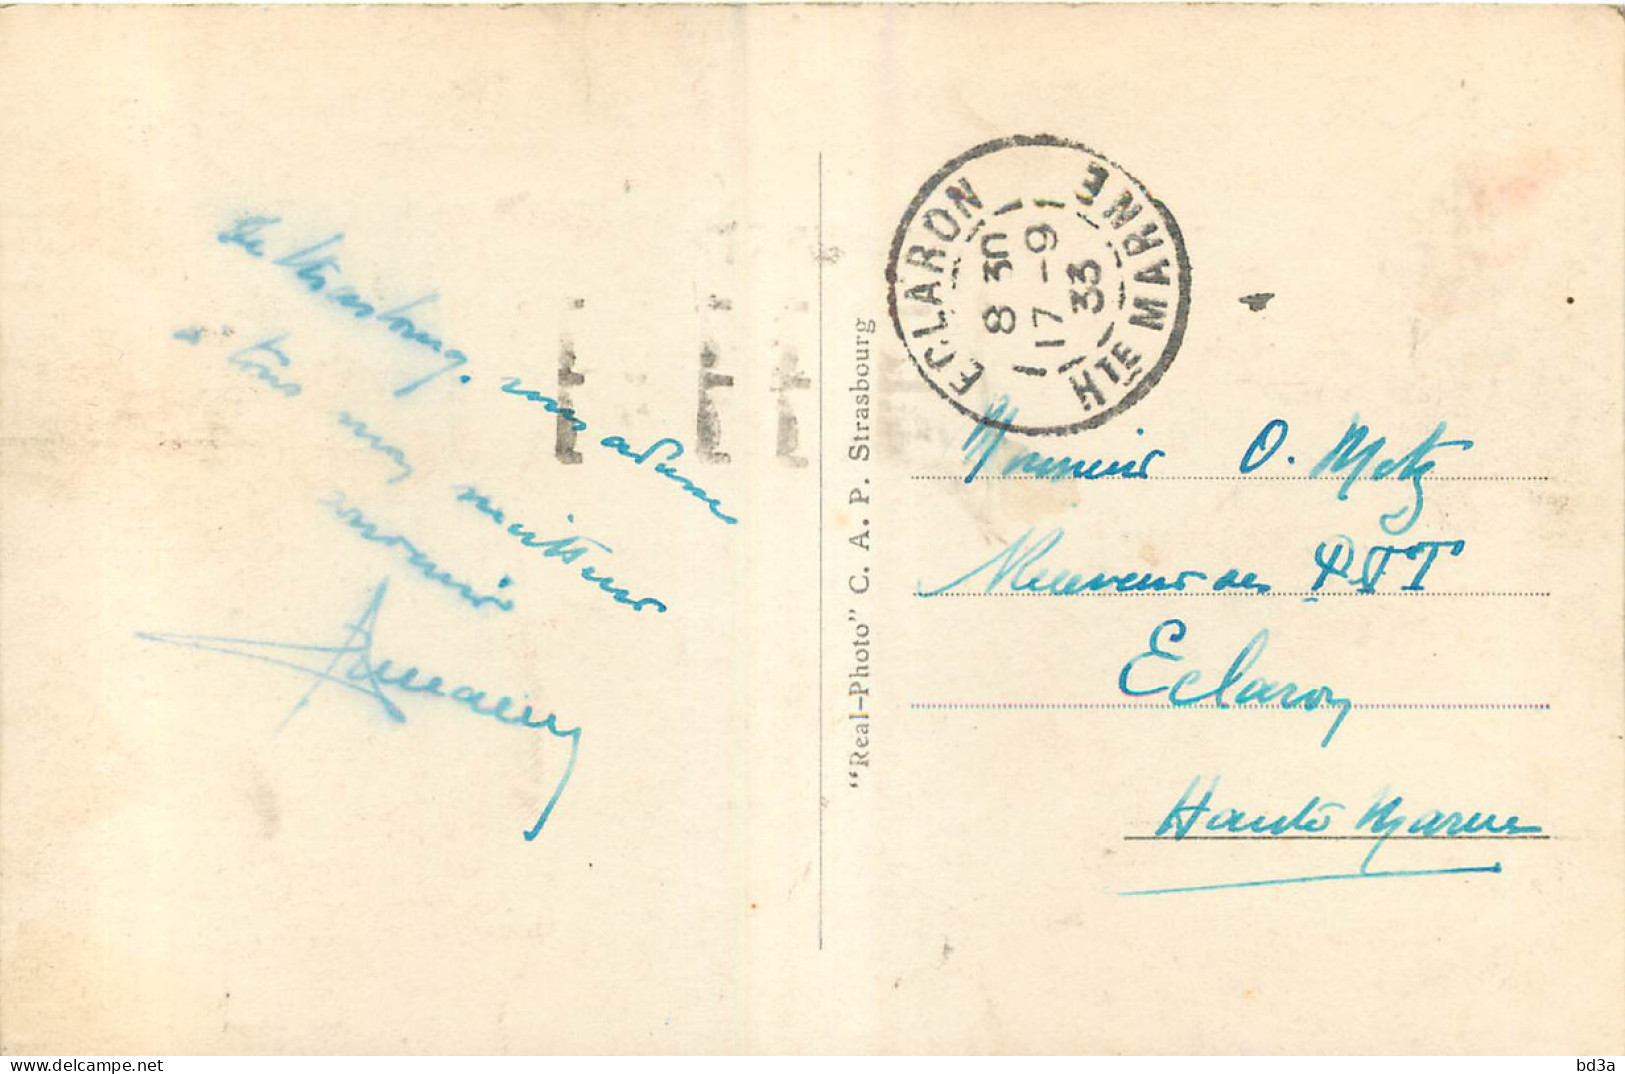 de Strasbourg. vous adresse
à tous mon meilleur
souvenir
"Real-Photo" C. A. P. Strasbourg
ECLARON
8 30
17 -9
33
HTE MARNE
Monsieur O. Metz
Receveur des PTT
Eclaron
Haute Marne
bd3a